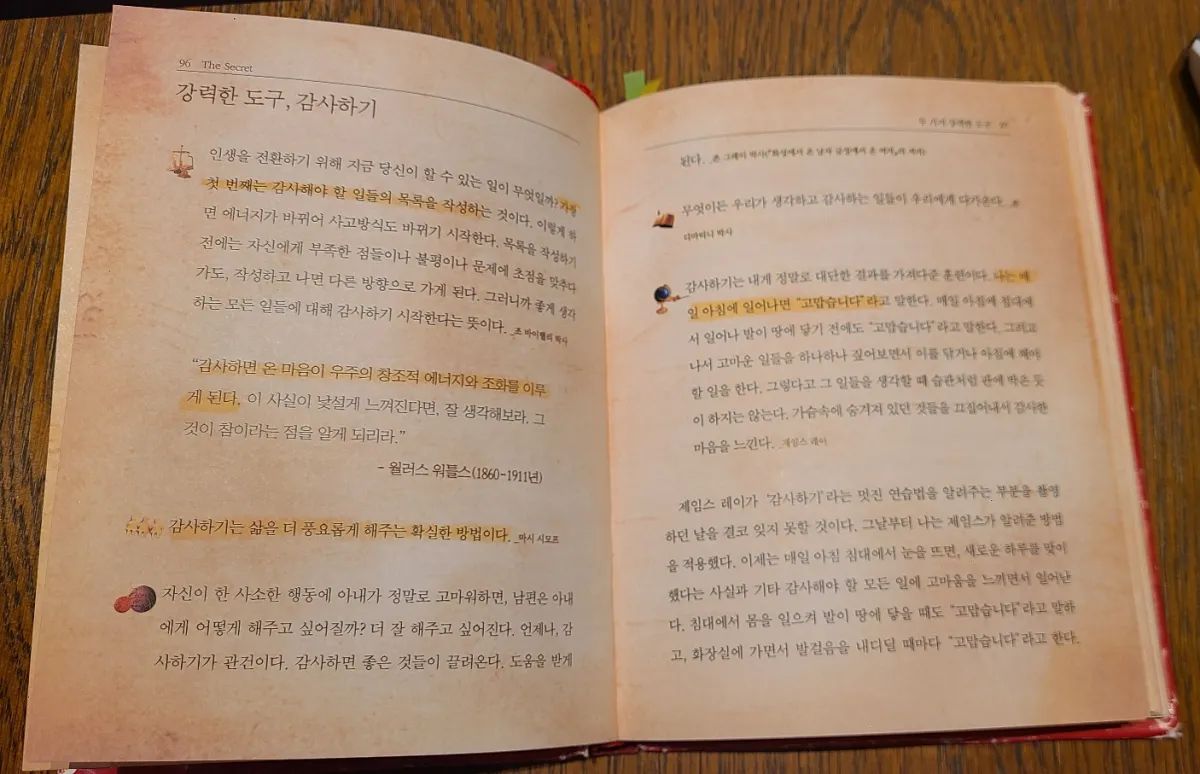 96 The Secret
강력한 도구, 감사하기
인생을 전환하기 위해 지금 당신이 할 수 있는 일이 무엇일까? 가장
첫 번째는 감사해야 할 일들의 목록을 작성하는 것이다. 이렇게 하
면 에너지가 바뀌어 사고방식도 바뀌기 시작한다. 목록을 작성하기
전에는 자신에게 부족한 점들이나 불평이나 문제에 초점을 맞추다
가도, 작성하고 나면 다른 방향으로 가게 된다. 그러니까 좋게 생각
하는 모든 일들에 대해 감사하기 시작한다는 뜻이다. _조 바이텔리 박사
“감사하면 온 마음이 우주의 창조적 에너지와 조화를 이루
게 된다. 이 사실이 낯설게 느껴진다면, 잘 생각해보라. 그
것이 참이라는 점을 알게 되리라.”
- 월러스 워틀스(1860-1911년)
감사하기는 삶을 더 풍요롭게 해주는 확실한 방법이다. _마시 시모프
자신이 한 사소한 행동에 아내가 정말로 고마워하면, 남편은 아내
에게 어떻게 해주고 싶어질까? 더 잘 해주고 싶어진다. 언제나, 감
사하기가 관건이다. 감사하면 좋은 것들이 끌려온다. 도움을 받게
두 가지 강력한 도구 97
된다. _존 그레이 박사(『화성에서 온 남자 금성에서 온 여자』의 저자)
무엇이든 우리가 생각하고 감사하는 일들이 우리에게 다가온다. _존
디마티니 박사
감사하기는 내게 정말로 대단한 결과를 가져다준 훈련이다. 나는 매
일 아침에 일어나면 “고맙습니다”라고 말한다. 매일 아침에 침대에
서 일어나 발이 땅에 닿기 전에도 “고맙습니다”라고 말한다. 그리고
나서 고마운 일들을 하나하나 짚어보면서 이를 닦거나 아침에 해야
할 일을 한다. 그렇다고 그 일들을 생각할 때 습관처럼 판에 박은 듯
이 하지는 않는다. 가슴속에 숨겨져 있던 것들을 끄집어내서 감사한
마음을 느낀다. _제임스 레이
제임스 레이가 ‘감사하기’라는 멋진 연습법을 알려주는 부분을 촬영
하던 날을 결코 잊지 못할 것이다. 그날부터 나는 제임스가 알려준 방법
을 적용했다. 이제는 매일 아침 침대에서 눈을 뜨면, 새로운 하루를 맞이
했다는 사실과 기타 감사해야 할 모든 일에 고마움을 느끼면서 일어난
다. 침대에서 몸을 일으켜 발이 땅에 닿을 때도 “고맙습니다”라고 말하
고, 화장실에 가면서 발걸음을 내디딜 때마다 “고맙습니다”라고 한다.